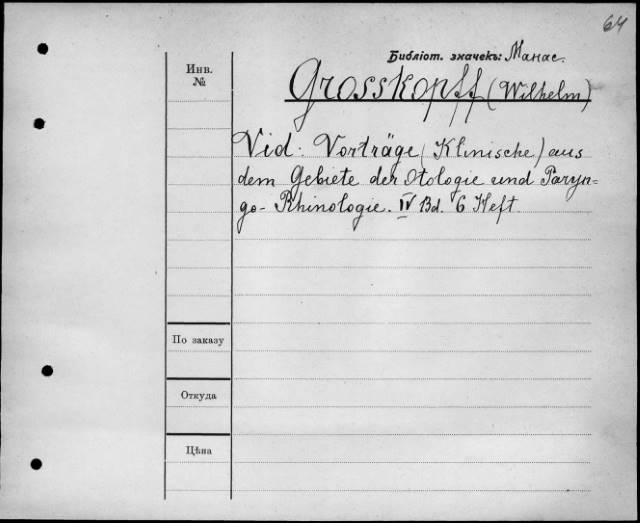 64
Библіот. значекъ: Манас.
Инв.
№
Grosskopff (Wilhelm)
Vid. Vorträge (Klinische) aus
dem Gebiete der Otologie und Paryn=
go- Rhinologie. IV Bd. 6 Heft.
По заказу
Откуда
Цѣна